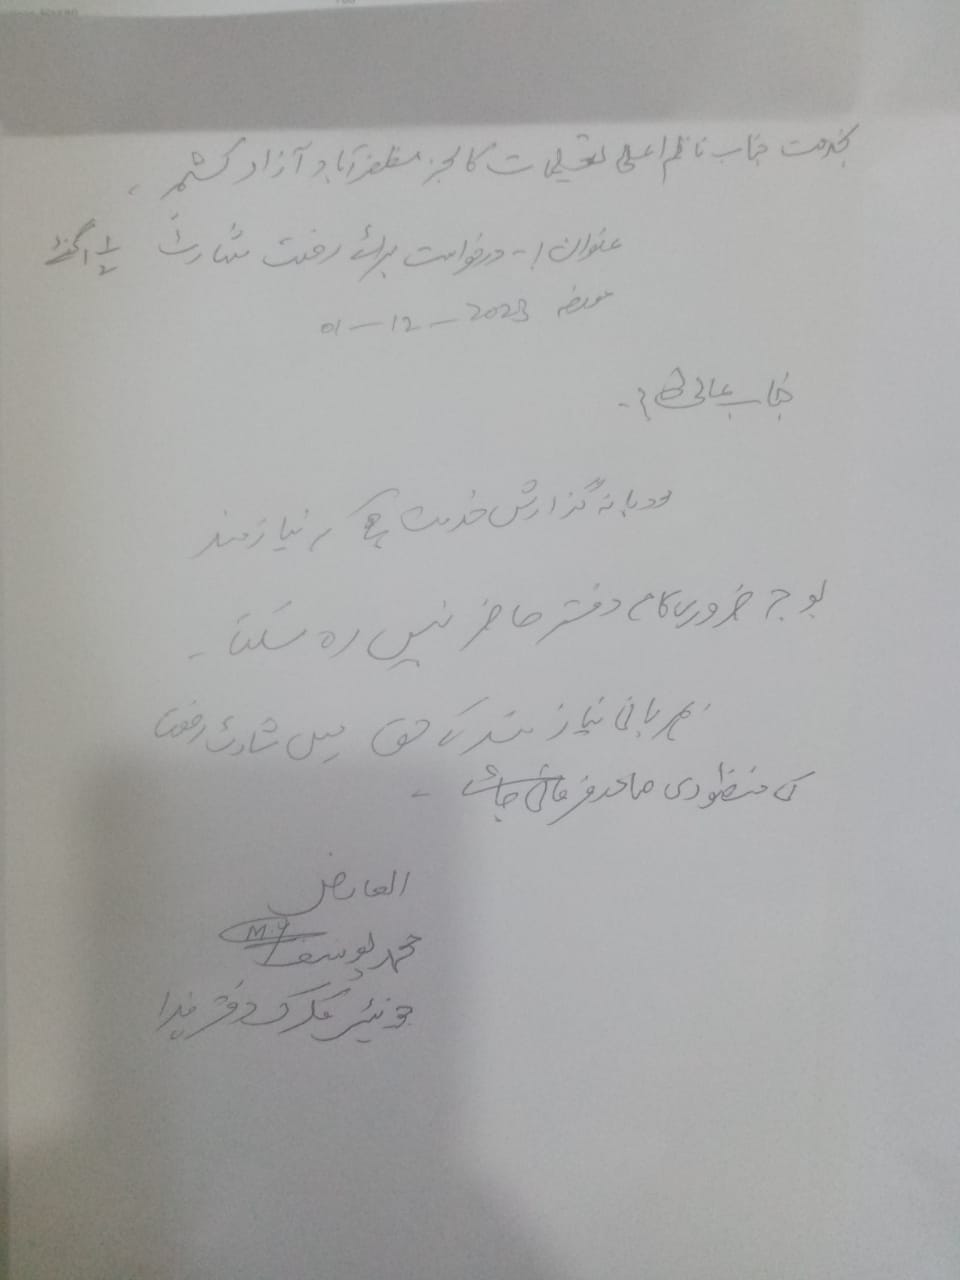 بخدمت جناب ناظم اعلیٰ تعلیمات کالجز مظفرآباد آزاد کشمیر ۔
عنوان :۔ درخواست برائے رخصت شارٹ
مورخہ 2023-12-01
جناب عالی !۔
مودبانہ گذارش خدمت ہیکہ نیازمند
بوجہ ضروری کام دفتر حاضر نہیں رہ سکتا ۔
مہربانی نیازمند کے حق میں شارٹ رخصت
کی منظوری صادر فرمائی جائے ۔
العارض
محمد یوسف M.Y
جونیئر کلرک دفتر ہذا